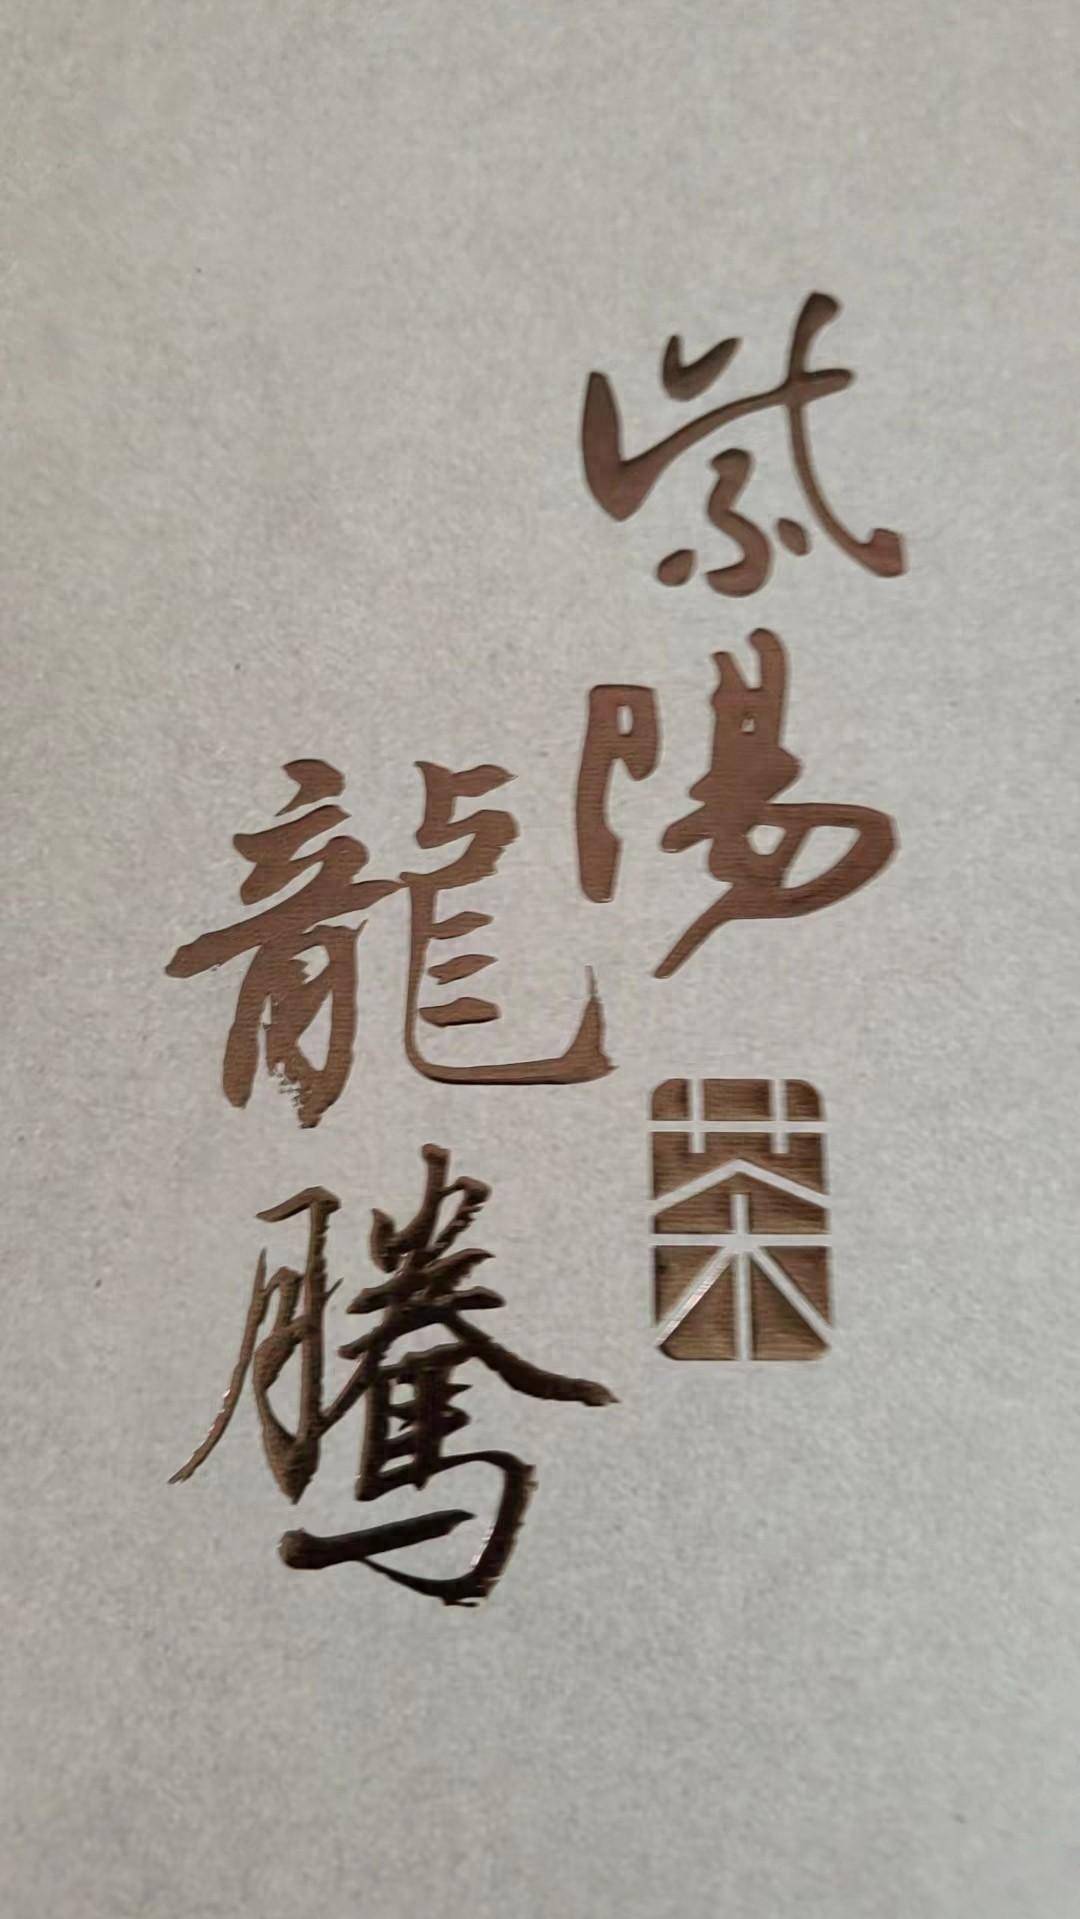 紫陽
茶
龍騰